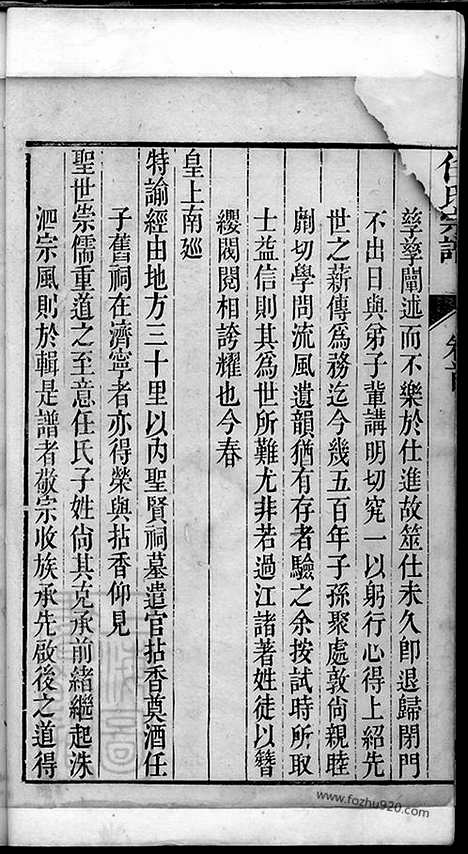 任氏宗譜
卷首
孳孳闡述而不樂於仕進故筮仕未久卽退歸閉門
不出日與弟子輩講明切究一以躬行心得上紹先
世之薪傳爲務迄今幾五百年子孫聚處敦尙親睦
劘切學問流風遺韻猶有存者驗之余按試時所取
士益信則其爲世所難尤非若過江諸著姓徒以簪
纓閥閱相誇耀也今春
皇上南廵
特諭經由地方三十里以內聖賢祠墓遣官拈香奠酒任
子舊祠在濟寧者亦得榮與拈香仰見
聖世崇儒重道之至意任氏子姓尙其克承前緒繼起洙
泗宗風則於輯是譜者敬宗收族承先啟後之道得
www.fozhu920.com